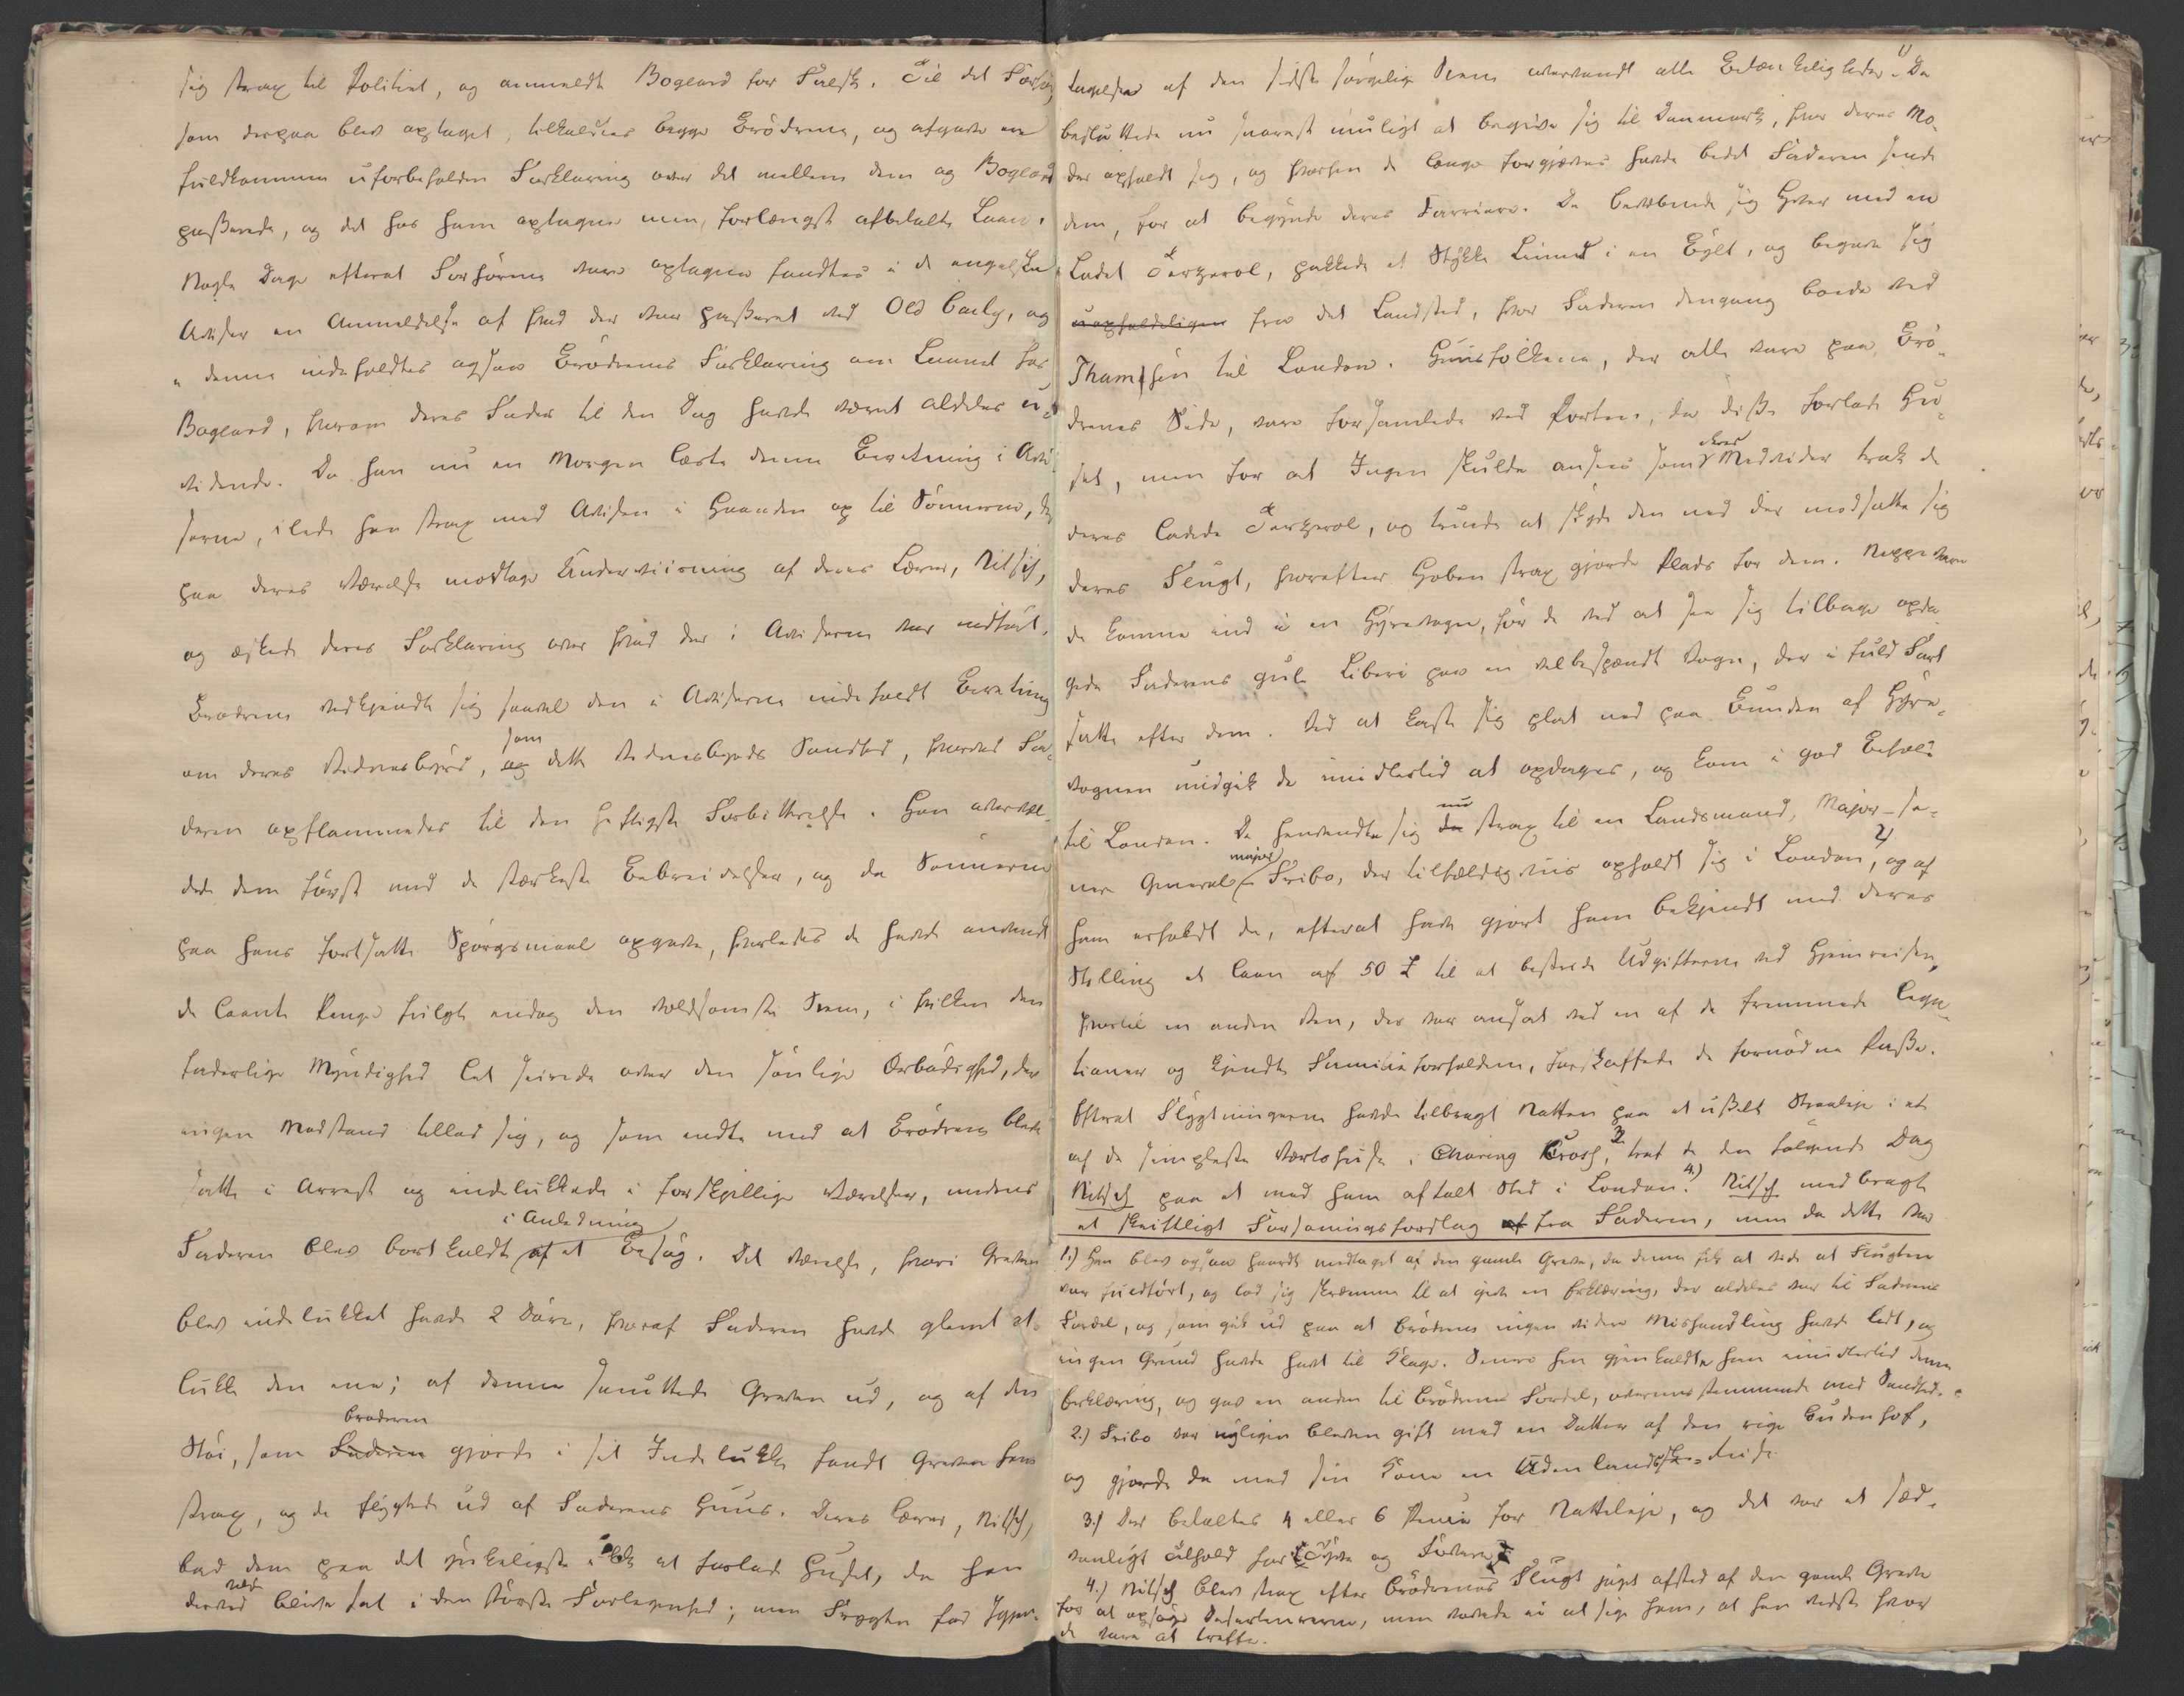 sig strax til Politiet, og anmeldte Bogeard for Falsk. Til det Forhör,
som derpaa blev optaget, tilkaldtes begge Brödrene, og afgave en
fuldkommen uforbeholden Forklaring over det mellem dem og Bogeard
passerede, og det hos ham optagne men, forlængst afbetalte Laan.
Nogle Dage efterat Forhörene vare optagne fandtes i de engelske
Aviser en Anmeldelse af hvad der var passeret ved Old Baily, og
i denne indeholdtes ogsaa Brödrenes Forklaring om Laanet hos
Bogeard, hvorom deres Fader til den Dag havde været aldeles u-
vidende. Da han nu en Morgen læste denne Beretning i Avi-
serne, ilede han strax med Avisen i Haanden op til Sönnerne, der
paa deres Værelse modtage Underviisning af deres Lærer, Nitsch,
og æskede deres Forklaring over hvad der i Aviserne var indfört.
Brödrene vedkjendte sig saavel den i Aviserne indeholdt Beretning
om deres Vidnesbyrd, som
og dette Vidnesbyrds Sandhed, hvorved Fa-
deren opflammedes til den heftigste Forbittrelse. Han overvæl-
dede dem först med de stærkeste Bebreidelser, og da Sönnerne
paa hans fortsatte Spörgsmaal opgave, hvorledes de havde anvendt
de laante Penge fulgte endog den voldsomste Scene, i hvilken den
faderlige Myndighed lod seirede over den sönlige Ærbödighed, der
ingen Modstand tillod sig, og som endte med at Brödrene bleve
satte i Arrest og indelukkede i forskjellige Værelser, medens
i Anledning
Faderen blev bortkaldt af et Besög. Det Værelse, hvori Greven
blev indelukket havde 2 Döre, hvoraf Faderen havde glemt at
lukke den ene; af denne smuttede Greven ud, og af den
Broderen
Stöi, som Faderen gjorde i sit Indelukke fandt Greven ham
strax, og de flygtede ud af Faderens Huus. Deres Lærer, Nitsch,
bad dem paa det ynkeligste ikke at forlade Huset, da han
ved
derved bleve sat i den störste Forlegenhed; men Frygten for Igjen-
tagelsen af den sidste sörgelige Scene overvandt alle Betænkeligheder. 1) De
besluttede nu snarest muligt at begive sig til Danmark, hvor deres Mo-
der opholdt sig, og hvorhen de længe forgjæves havde bedet Faderen sende
dem, for at begynde deres Carriere. De bevæbnede sig hver med en
Ladet Terzerol, pakkede et Stykke Linned i en Bylt, og begave sig
uopholdeligen fra det Landsted, hvor Faderen dengang boede ved
Thamsen til London. Huusfolkene, der alle vare paa Brö-
drenes Side, vare forsamlede ved Porten, da disse forlode Hu-
set, men for at Ingen skulde ansees som deres Medvider trak de
deres ladede Terzerol, og truede at skyde den ned der modsatte sig
deres Flugt, hvorefter Hoben strax gjorde Plads for dem. Neppe vare
de komne ind i en Hyrevogn, för de ved at see sig tilbage opda-
gede Faderens gule Liberi paa en velbespændt Vogn, der i fuld Fart
satte efter dem. Ved at kaste sig plat ned paa Bunden af Hyre-
vognen undgik de imidlertid at opdages, og kom i god Behold
til London. De henvendte sig nu da strax til en Landsmand, Major – se-
nere General major Fribo, der tilfældigviis opholdt sig i London, 2) og af
ham erholdt de, efterat have gjort ham bekjendt med deres
Stilling et Laan af 50 £ til at bestride Udgifterne ved Hjemreisen,
hvortil en anden Ven, der var ansat ved en af de fremmede Lega-
tioner og kjendte Familieforholdene, forskaffede de fornödne Passe.
Efterat Flygtningerne havde tilbragt Natten paa et usselt Straaleje i et
af de simpleste Værtshuse, Charing Cross, 3 traf de den fölgende Dag
Nitsch paa et med ham aftalt Sted i London. 4.) Nitsch medbragte
et skriftligt Forsoningsforslag af fra Faderen, men da dette var
1.) Han blev ogsaa haardt medtaget af den gamle Greve, da denne fik at vide at Flugten
var fuldfört, og lod sig skræmme til at give en Erklæring, der aldeles var til Faderens
Fordel, og som gik ud paa at Brödrene ingen videre Mishandling havde lidt, og
ingen Grund havde havt til Klage. Senere hen gjenkaldte han imidlertid denne
Erklæring, og gav en anden til Brödrenes Fordel, overensstemmende med Sandhed.
2.) Fribo var nyligen bleven gift med en Datter af den rige Budenhof,
og gjorde da med sin Kone en Udenlandsreise
3.) Der betaltes 4 eller 6 Pence for Natteleje, og det var et sæd-
vanligt Tilhold for Tyve og
4.) Nitsch blev strax efter Brödrenes Flugt jaget afsted af den gamle Greve
for at opsöge Deserteurerne, men vovede ei at sige ham, at han vidste hvor
de vare at træffe.